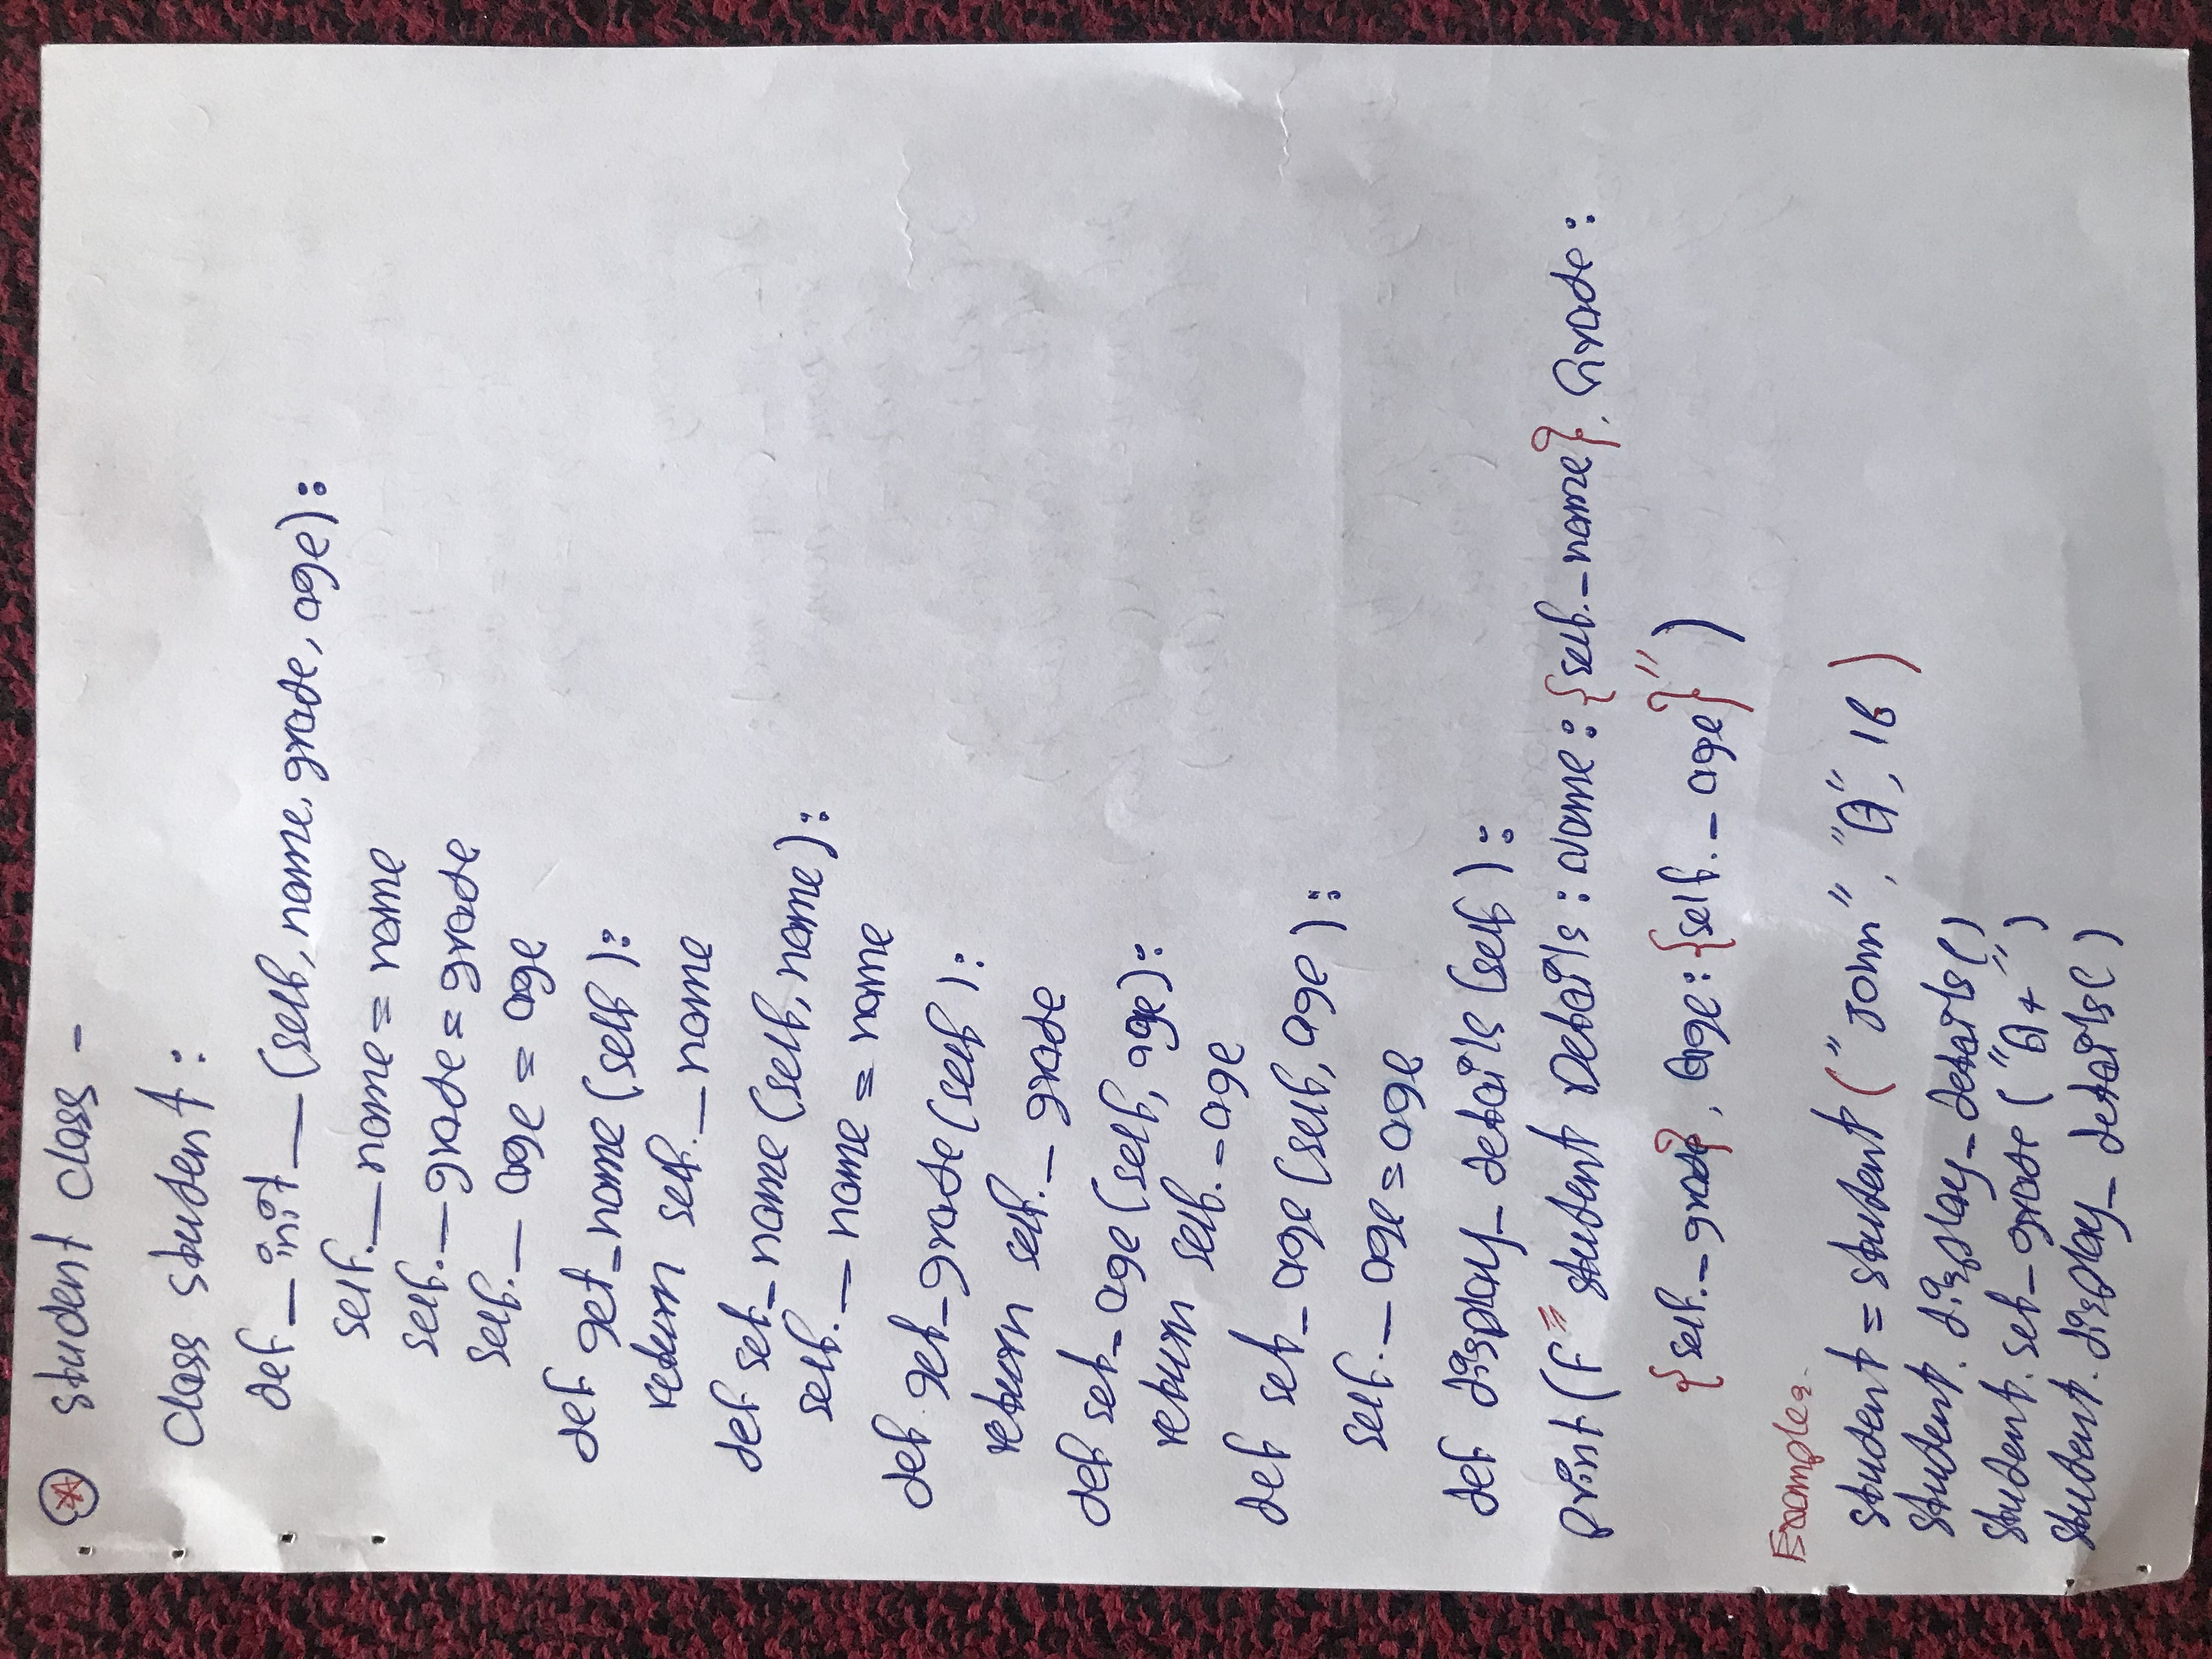 student class -
class student:
def _ init __ (self, name, grade, age):
self.__name = name
self.__grade = grade
self.__age = age
def get_name (self):
return self.__name
def set_name (self, name):
self.__name = name
def get_grade (self):
return self.__grade
def set_age (self, age):
return self._age
def set_age (self, age):
self.__age = age
def display_details (self):
print (f" student Details : Name : {self._name}, Grade :
{self._grade}, Age : {self._age}")
Examples.
student = student ("John", "A", 16)
student.display_details()
student.set_grade ("A+")
student.display_details()